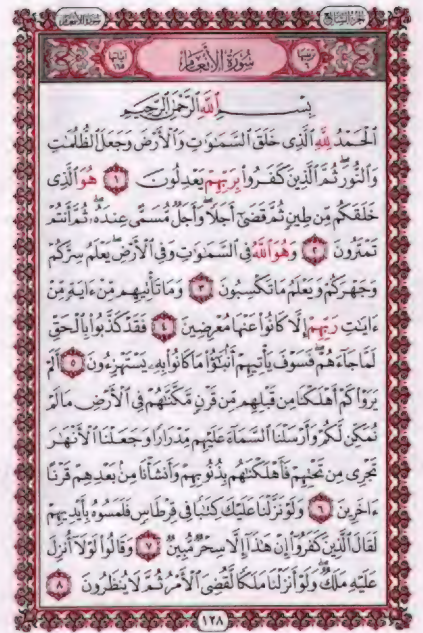 سورة الأنعام
الجزء السابع
ترتيبها ٦
سُورَةُ الأَنْعَامِ
آياتها ١٦٥
بِسْمِ اللَّهِ الرَّحْمَٰنِ الرَّحِيمِ
الْحَمْدُ لِلَّهِ الَّذِي خَلَقَ السَّمَٰوَٰتِ وَالْأَرْضَ وَجَعَلَ الظُّلُمَٰتِ
وَالنُّورَ ۖ ثُمَّ الَّذِينَ كَفَرُوا۟ بِرَبِّهِمْ يَعْدِلُونَ ١ هُوَ الَّذِي
خَلَقَكُم مِّن طِينٍ ثُمَّ قَضَىٰٓ أَجَلًا ۖ وَأَجَلٌ مُّسَمًّى عِندَهُۥ ۖ ثُمَّ أَنتُمْ
تَمْتَرُونَ ٢ وَهُوَ اللَّهُ فِي السَّمَٰوَٰتِ وَفِي الْأَرْضِ ۖ يَعْلَمُ سِرَّكُمْ
وَجَهْرَكُمْ وَيَعْلَمُ مَا تَكْسِبُونَ ٣ وَمَا تَأْتِيهِم مِّنْ ءَايَةٍ مِّنْ
ءَايَٰتِ رَبِّهِمْ إِلَّا كَانُوا۟ عَنْهَا مُعْرِضِينَ ٤ فَقَدْ كَذَّبُوا۟ بِالْحَقِّ
لَمَّا جَآءَهُمْ ۖ فَسَوْفَ يَأْتِيهِمْ أَنۢبَٰٓؤُا۟ مَا كَانُوا۟ بِهِۦ يَسْتَهْزِءُونَ ٥ أَلَمْ
يَرَوْا۟ كَمْ أَهْلَكْنَا مِن قَبْلِهِم مِّن قَرْنٍ مَّكَّنَّٰهُمْ فِي الْأَرْضِ مَا لَمْ
نُمَكِّن لَّكُمْ وَأَرْسَلْنَا السَّمَآءَ عَلَيْهِم مِّدْرَارًا وَجَعَلْنَا الْأَنْهَٰرَ
تَجْرِي مِن تَحْتِهِمْ فَأَهْلَكْنَٰهُم بِذُنُوبِهِمْ وَأَنشَأْنَا مِنۢ بَعْدِهِمْ قَرْنًا
ءَاخَرِينَ ٦ وَلَوْ نَزَّلْنَا عَلَيْكَ كِتَٰبًا فِي قِرْطَاسٍ فَلَمَسُوهُ بِأَيْدِيهِمْ
لَقَالَ الَّذِينَ كَفَرُوٓا۟ إِنْ هَٰذَآ إِلَّا سِحْرٌ مُّبِينٌ ٧ وَقَالُوا۟ لَوْلَآ أُنزِلَ
عَلَيْهِ مَلَكٌ ۖ وَلَوْ أَنزَلْنَا مَلَكًا لَّقُضِيَ الْأَمْرُ ثُمَّ لَا يُنظَرُونَ ٨
١٢٨